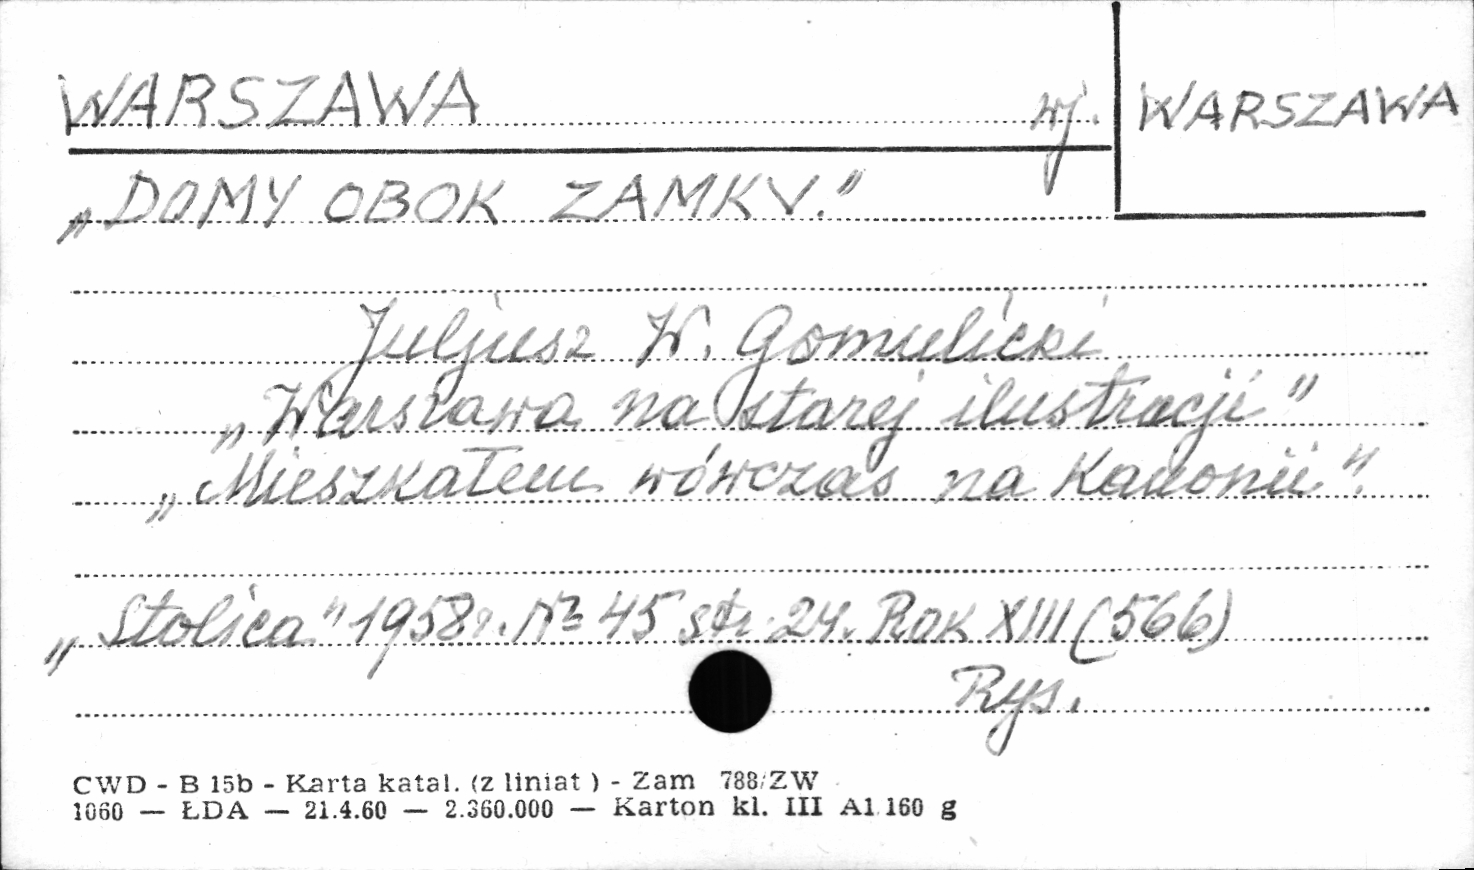 WARSZAWA wj. WARSZAWA
„DOMY OBOK ZAMKU."
Juljusz W. Gomulicki
„Warszawa na starej ilustracji"
„Mieszkałem wówczas na Kanonii".
„Stolica" 1958r. № 45 str. 24. Rok XIII (566)
Rys.
CWD - B 15b - Karta katal. (z liniat ) - Zam 788/ZW
1060 — ŁDA — 21.4.60 — 2.360.000 — Karton kl. III A1 160 g